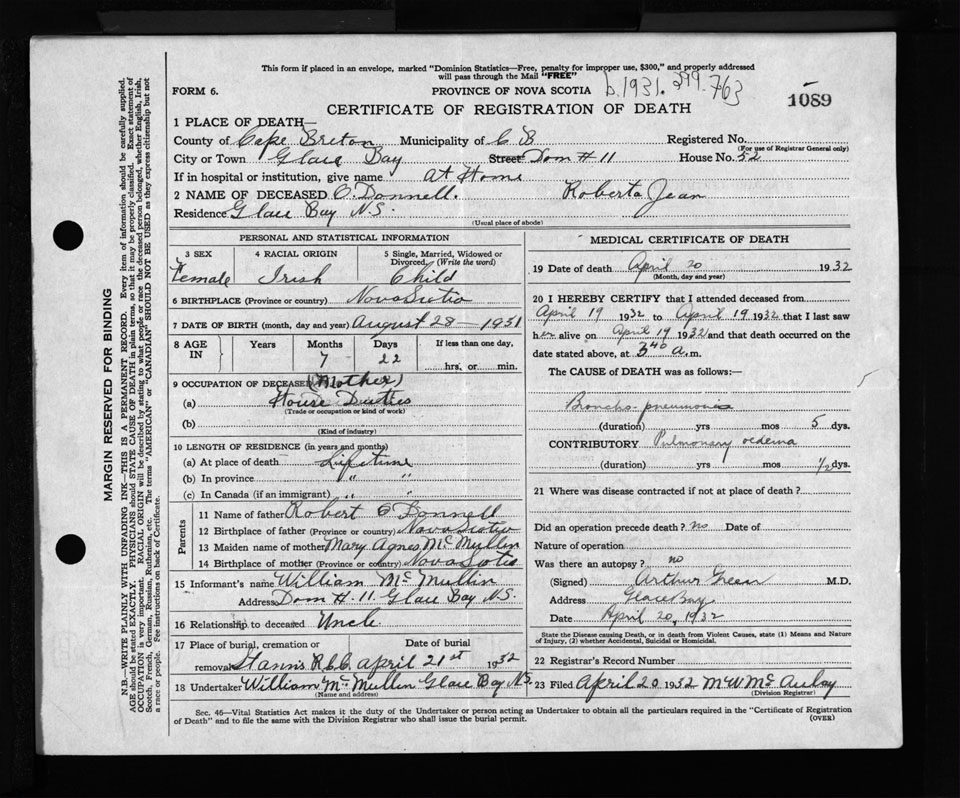 This form if placed in an envelope, marked "Dominion Statistics—Free, penalty for improper use, $300," and properly addressed
will pass through the Mail "FREE"
FORM 6. PROVINCE OF NOVA SCOTIA b.1931. 399.763
CERTIFICATE OF REGISTRATION OF DEATH 1089
1 PLACE OF DEATH—
County of Cape Breton Municipality of C B Registered No.
(For use of Registrar General only)
City or Town Glace Bay Street Dom # 11 House No. 52
If in hospital or institution, give name At Home
2 NAME OF DECEASED O'Donnell. Roberta Jean
Residence Glace Bay N.S.
(Usual place of abode)
PERSONAL AND STATISTICAL INFORMATION
3 SEX 4 RACIAL ORIGIN 5 Single, Married, Widowed or
Divorced. (Write the word)
Female Irish Child
6 BIRTHPLACE (Province or country) Nova Scotia
7 DATE OF BIRTH (month, day and year) August 28 - 1931
8 AGE IN Years Months Days If less than one day,
7 22 hrs. or min.
9 OCCUPATION OF DECEASED (Mother)
(a) House Duties
(Trade or occupation or kind of work)
(b)
(Kind of industry)
10 LENGTH OF RESIDENCE (in years and months)
(a) At place of death Lifetime
(b) In province " "
(c) In Canada (if an immigrant) " "
Parents
11 Name of father Robert O'Donnell
12 Birthplace of father (Province or country) Nova Scotia
13 Maiden name of mother Mary Agnes McMullin
14 Birthplace of mother (Province or country) Nova Scotia
15 Informant's name William McMullin
Address Dom # 11. Glace Bay N.S.
16 Relationship to deceased Uncle
17 Place of burial, cremation or Date of burial
removal St Anns R.C.C. April 21st 1932
18 Undertaker William McMullin Glace Bay N.S.
(Name and address)
MEDICAL CERTIFICATE OF DEATH
19 Date of death April 20 1932
(Month, day and year)
20 I HEREBY CERTIFY that I attended deceased from
April 19 1932 to April 19 1932 that I last saw
her alive on April 19 1932 and that death occurred on the
date stated above, at 3 40 a.m.
The CAUSE of DEATH was as follows:
Broncho-pneumonia
(duration) yrs mos 5 dys.
CONTRIBUTORY Pulmonary oedema
(duration) yrs mos 1/2 dys.
21 Where was disease contracted if not at place of death?
Did an operation precede death? no Date of
Nature of operation
Was there an autopsy? no
(Signed) Arthur Green M.D.
Address Glace Bay
Date April 20, 1932
State the Disease causing Death, or in death from Violent Causes, state (1) Means and Nature
of Injury, (2) whether Accidental, Suicidal or Homicidal.
22 Registrar's Record Number
23 Filed April 20 1932 M W McAulay
(Division Registrar)
Sec. 46—Vital Statistics Act makes it the duty of the Undertaker or person acting as Undertaker to obtain all the particulars required in the "Certificate of Registration
of Death" and to file the same with the Division Registrar who shall issue the burial permit.
(OVER)
MARGIN RESERVED FOR BINDING
N.B.—WRITE PLAINLY WITH UNFADING INK—THIS IS A PERMANENT RECORD. Every item of information should be carefully supplied.
AGE should be stated EXACTLY. PHYSICIANS should STATE CAUSE OF DEATH in plain terms, so that it may be properly classified. Exact statement of
OCCUPATION is very important. RACIAL ORIGIN will be described by stating to what people or race the deceased person belonged, whether English, Irish,
Scotch, French, German, Russian, Ruthenian, etc. The terms "AMERICAN" or "CANADIAN" SHOULD NOT BE USED as they express citizenship but not
a race or people. Fee instructions on back of Certificate.